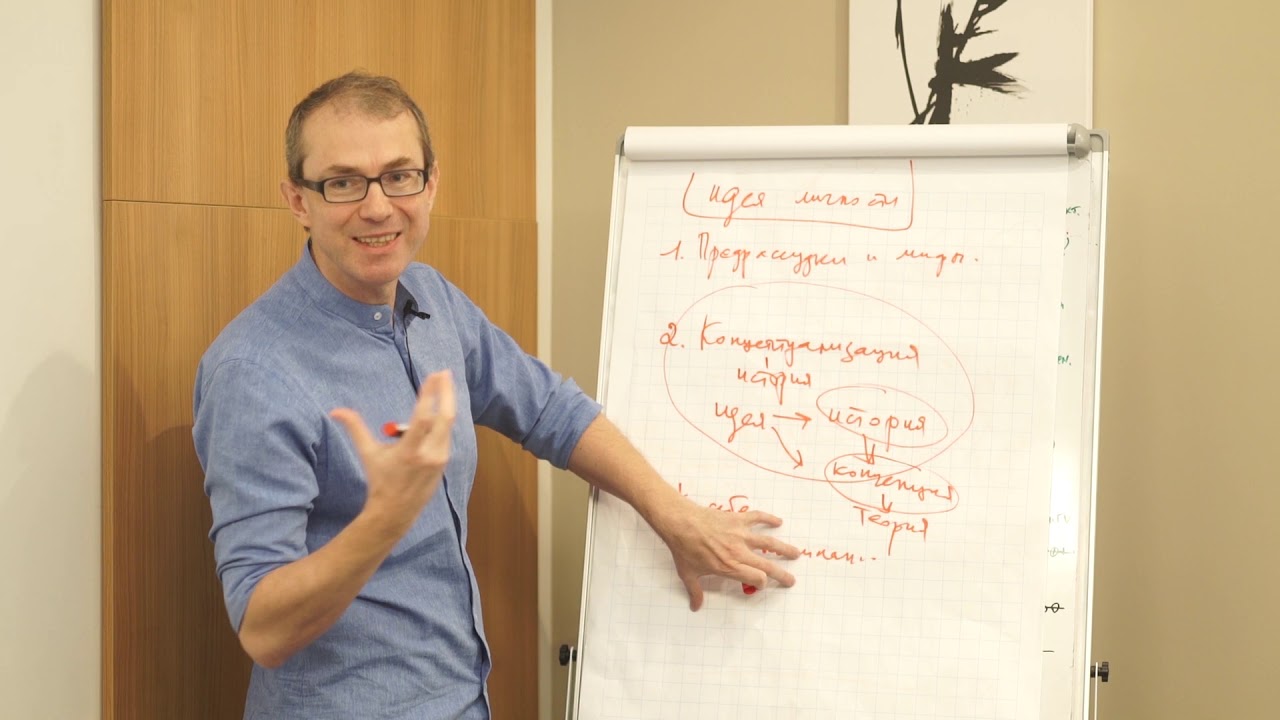 идея личности
1. Предрассудки и мифы.
2. Концептуализация
история
идея → история
концепция
теория